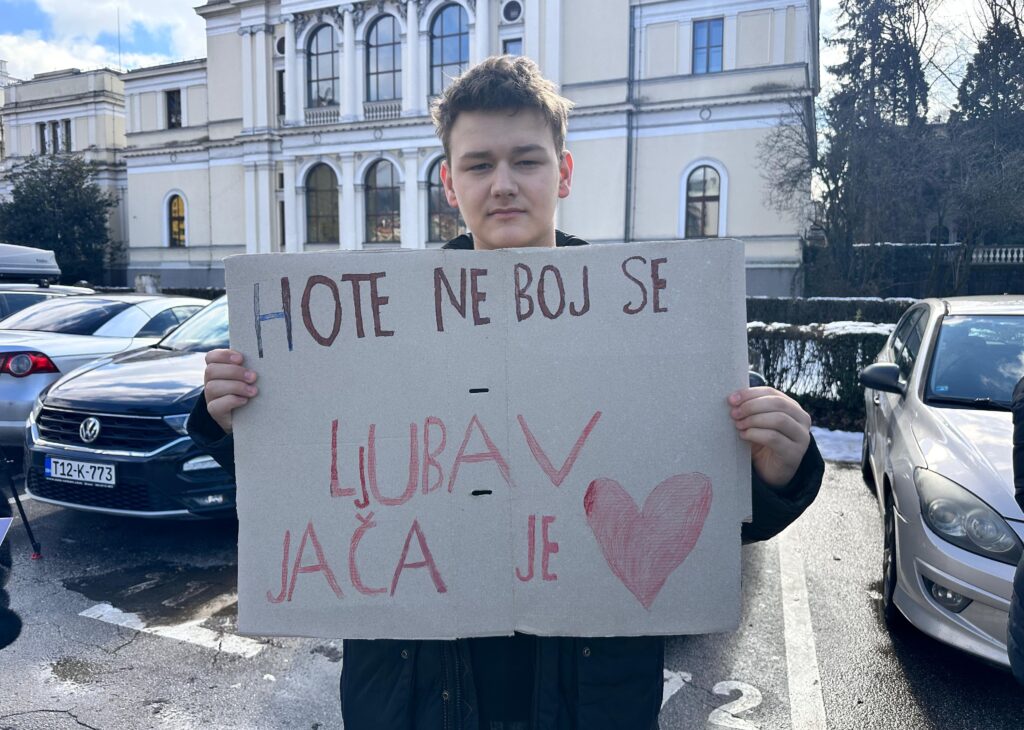 HOTE NE BOJ SE
LJUBAV
JAČA JE
T12-K-773
2